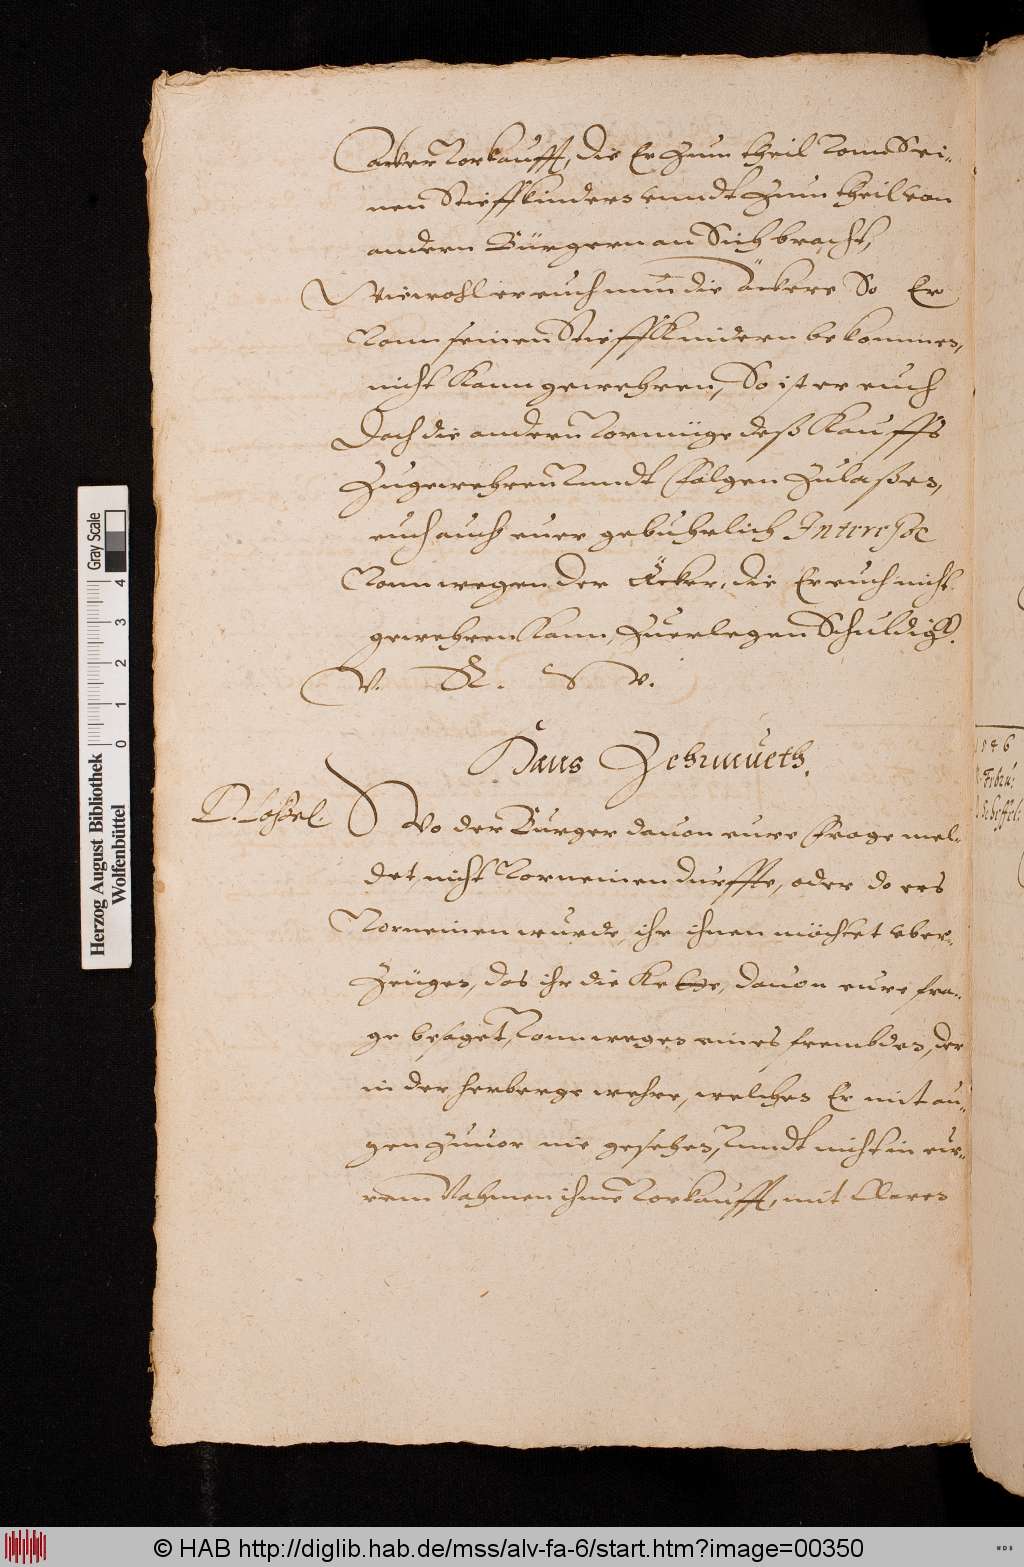 acker vorkaufft, die Er zum theil vonn Sei-
nen Stieffkindern vnndt zum theil von
andern Bürgern an Sich bracht,
Wiewohl er euch nun die äckere So Er
vonn seinen Stieffkindern bekommen,
nicht kann gewehren, So ist er euch
Doch die andern vormüge deß Kauffs
Zugewehren vnndt folgen Zulaßen,
euch auch euer gebuhrlich Interesse
vonn wegen der äcker, die Er euch nicht
gewehren kann, Zuerlegen Schuldig.
V. R. W.
Hans Zehmueth.
D. Loßel.
Wo der Burger dauon eure frage mel-
det, nicht vorneinen durffte, oder do ers
vorneinen wurde, ihr ihnen möchtet vber-
Zeugen, das ihr die dauon eure fra-
ge besaget, vonn wegen eines frembden, der
in der herberge wehre, welchen Er mit au-
gen Zuuor nie gesehen, vnndt nicht in eu-
rem Nahmen ihme vorkaufft, mit klaren
1586
Febru:
Scheffel:
Gray Scale
4
3
2
1
0
Herzog August Bibliothek
Wolfenbüttel
© HAB http://diglib.hab.de/mss/alv-fa-6/start.htm?image=00350
WDB